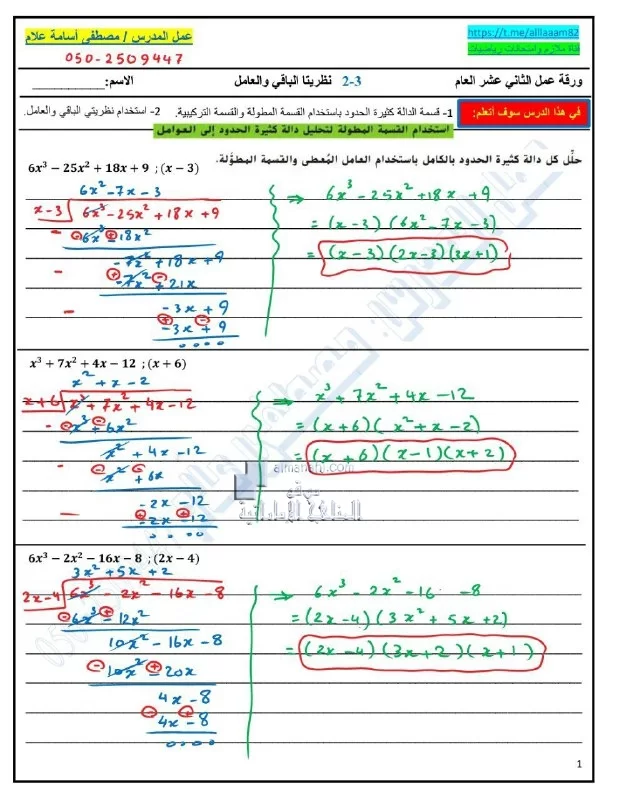 عمل المدرس / مصطفى أسامة علام
050-2509447
https://t.me/alllaaam82
قناة ملازم وامتحانات رياضيات
ورقة عمل الثاني عشر العام
2-3 نظريتا الباقي والعامل
الاسم:____________
في هذا الدرس سوف أتعلم:
1- قسمة الدالة كثيرة الحدود باستخدام القسمة المطولة والقسمة التركيبية. 2- استخدام نظريتي الباقي والعامل.
استخدام القسمة المطولة لتحليل دالة كثيرة الحدود إلى العوامل
حلِّل كل دالة كثيرة الحدود بالكامل باستخدام العامل المُعطى والقسمة المطوَّلة.
6x³ − 25x² + 18x + 9 ; (x − 3)
6x² − 7x − 3
x − 3 6x³ − 25x² + 18x + 9
− 6x³ − 18x²
− 7x² + 18x + 9
− − 7x² + 21x
− 3x + 9
− − 3x + 9
0 0 0 0
⇒ 6x³ − 25x² + 18x + 9
= (x − 3) (6x² − 7x − 3)
= (x − 3) (2x − 3) (3x + 1)
x³ + 7x² + 4x − 12 ; (x + 6)
x² + x − 2
x + 6 x³ + 7x² + 4x − 12
− x³ + 6x²
x² + 4x − 12
− x² + 6x
− 2x − 12
− − 2x − 12
0 0 0 0
⇒ x³ + 7x² + 4x − 12
= (x + 6) ( x² + x − 2)
= (x + 6) (x − 1) (x + 2)
almanahj.com
موقع
المناهج الإماراتية
6x³ − 2x² − 16x − 8 ; (2x − 4)
3x² + 5x + 2
2x − 4 6x³ − 2x² − 16x − 8
6x³ − 12x²
10x² − 16x − 8
10x² − 20x
4x − 8
4x − 8
0 0 0 0
⇒ 6x³ − 2x² − 16 − 8
= (2x − 4) ( 3x² + 5x + 2)
= (2x − 4) (3x + 2) (x + 1)
1